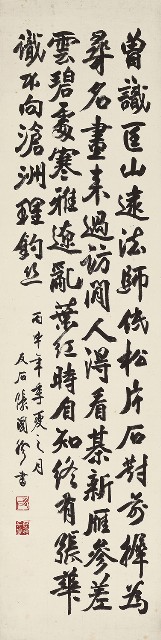 曾識匡山遠法師低松片石對前墀為
尋名畫來過訪閒人得看棊新雁參差
雲碧處寒雅遼亂葉紅時自知終有張華
識不向滄洲理釣絲
丙午年季夏之月
石 國珍書